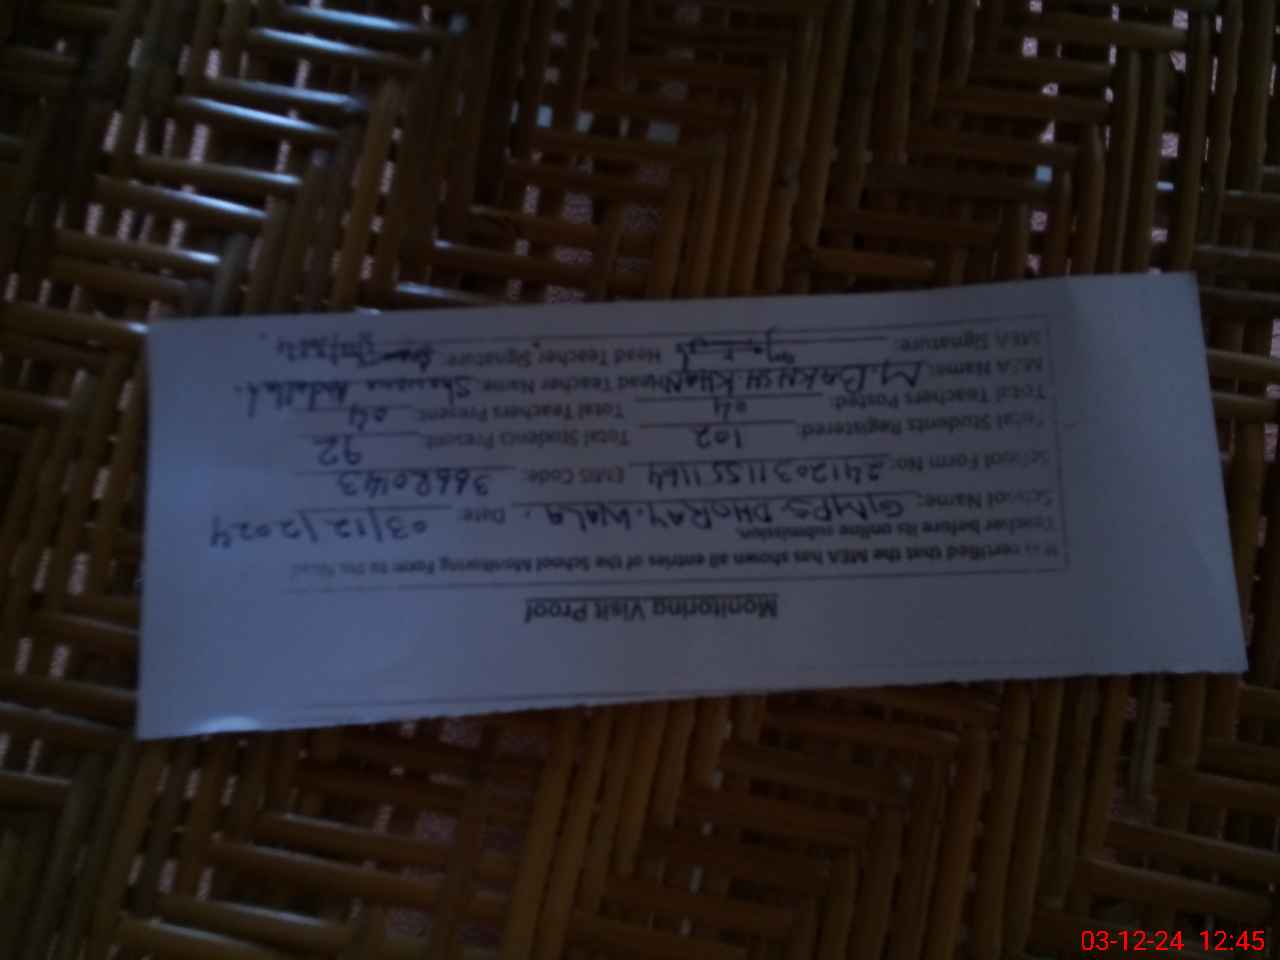 Monitoring Visit Proof
It is certified that the MEA has shown all entries of the School Monitoring Form to the Head
Teacher before its online submission.
School Name: GMPS DHORAY WALA. Date: 03/12/2024
School Form No: 24120311551164 EMIS Code: 36620143
Total Students Registered: 102 Total Students Present: 92
Total Teachers Posted: 04 Total Teachers Present: 04
MEA Name: M. BAKHSH KHAN Head Teacher Name: Shawana
MEA Signature: Head Teacher Signature:
03-12-24 12:45